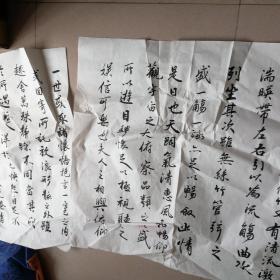 有清流激
湍暎帶左右引以為流觴曲水
列坐其次雖無絲竹管弦之
盛一觴一詠亦足以暢敘幽情
是日也天朗氣清惠風和暢仰
觀宇宙之大俯察品類之盛
所以遊目騁懷足以極視聽之
娛信可樂也夫人之相與俯仰
一世或取諸懷抱悟言一室之內
或因寄所託放浪形骸之外雖
趣舍萬殊靜躁不同當其欣
於所遇